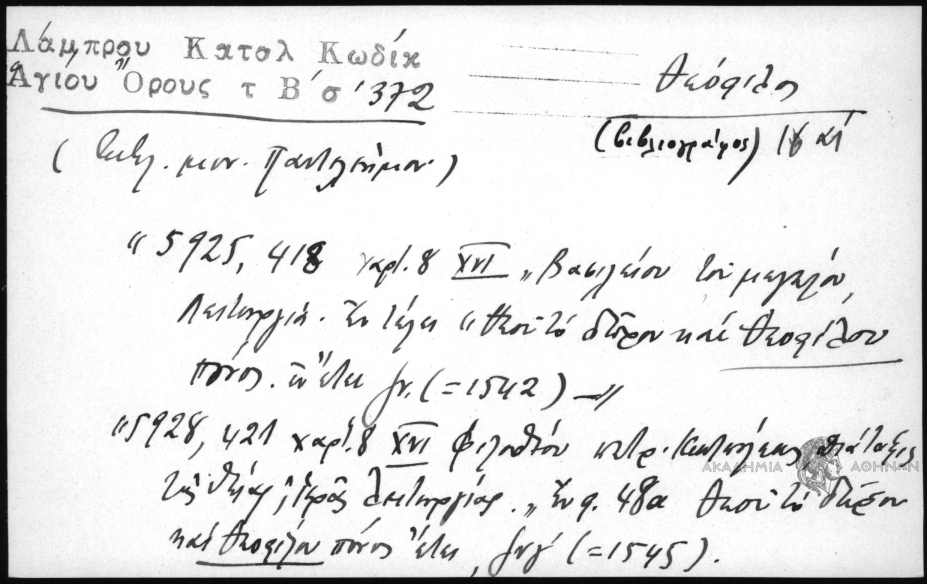 Λάμπρου Κατολ Κωδίκ
Ἁγίου Ὄρους τ Β΄ σ 372
Θεόφιλος
(βιβλιογράφος) 16 αἰ
(Βιβλ. μον. Παντελεήμον.)
"5925, 418 χαρτ. 8 XVI „Βασιλείου τοῦ μεγάλου
Λειτουργία. Ἐν τέλει "Θεοῦ τὸ δῶρον καὶ Θεοφίλου
πόνος. ἐν ἔτει ζν. (=1542) —"
"5928, 421 χαρτ. 8 XVI Φιλοθέου πατρ. Κωνσ/λεως διάταξις
τῆς θείας ἱερᾶς λειτουργίας. „Ἐν φ. 48α Θεοῦ τὸ δῶρον
καὶ Θεοφίλου πόνος ἔτει ͵ζνγ΄ (=1545).
ΑΚΑΔΗΜΙΑ ΑΘΗΝΩΝ